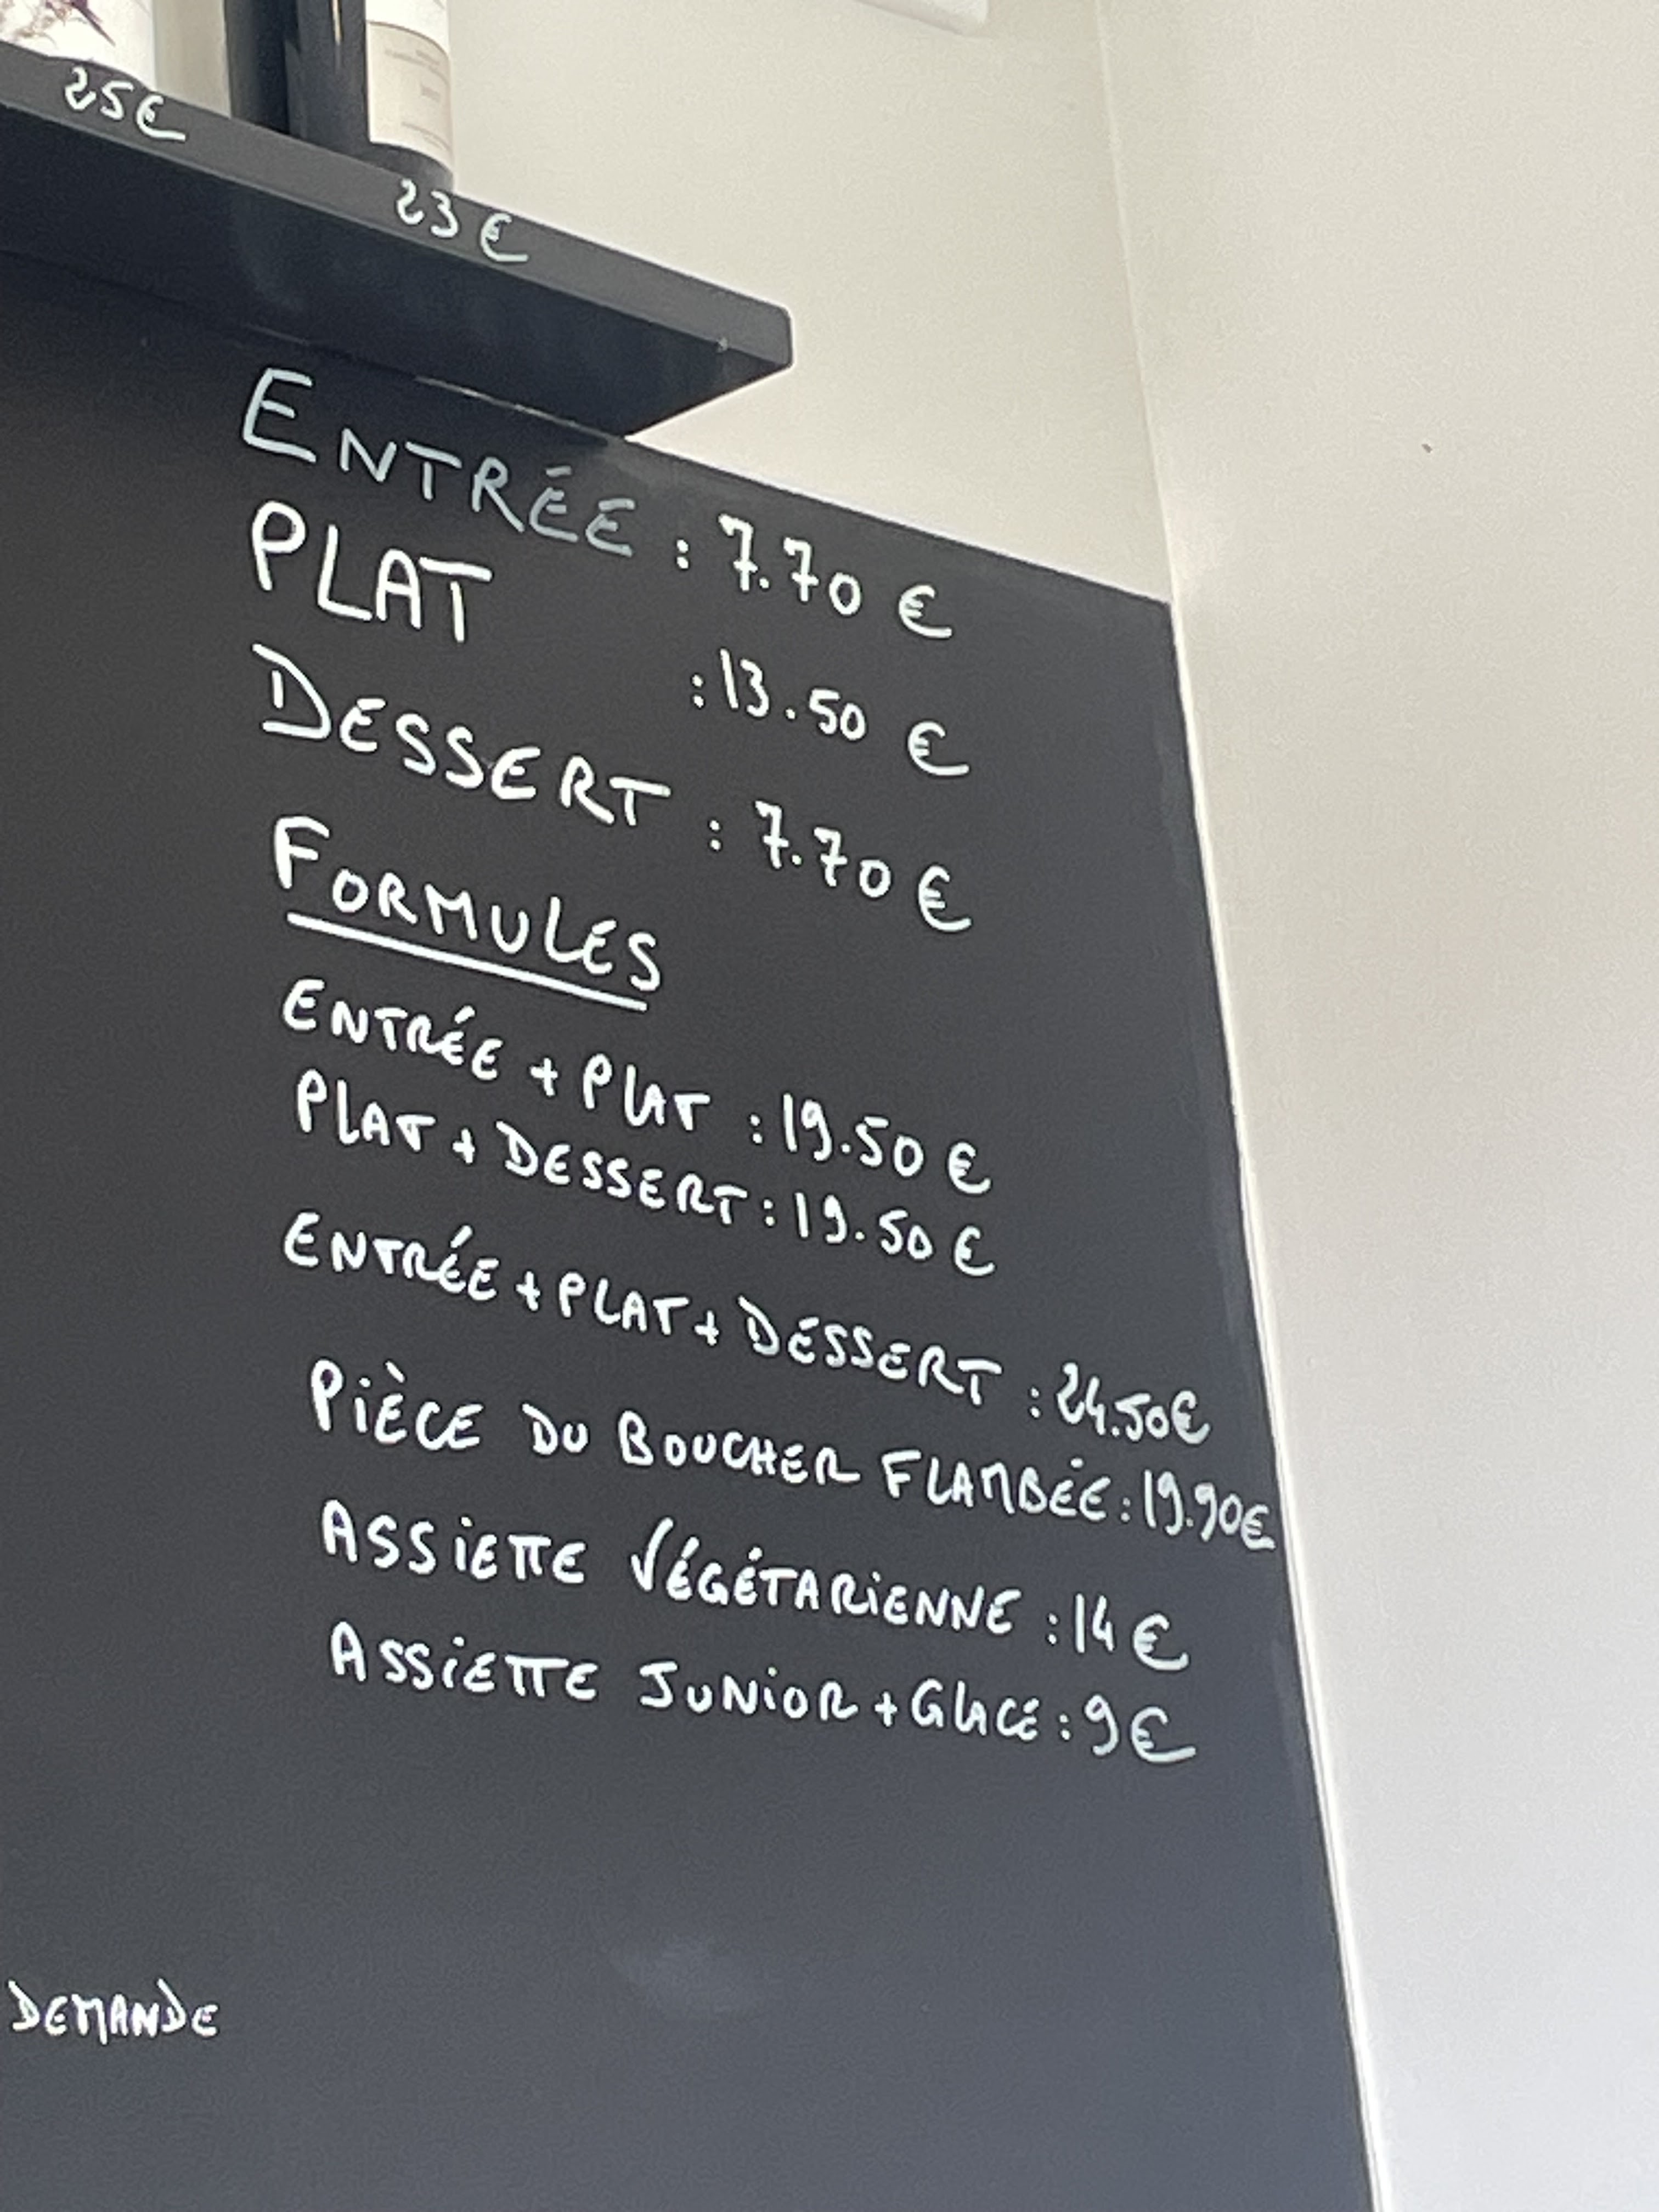 25€
23€
ENTRÉE : 7.70 €
PLAT : 13.50 €
DESSERT : 7.70 €
FORMULES
ENTRÉE + PLAT : 19.50 €
PLAT + DESSERT : 19.50 €
ENTRÉE + PLAT + DESSERT : 24.50€
PIÈCE DU BOUCHER FLAMBÉE : 19.90€
ASSIETTE VÉGÉTARIENNE : 14 €
ASSIETTE JUNIOR + GLACE : 9 €
DEMANDE